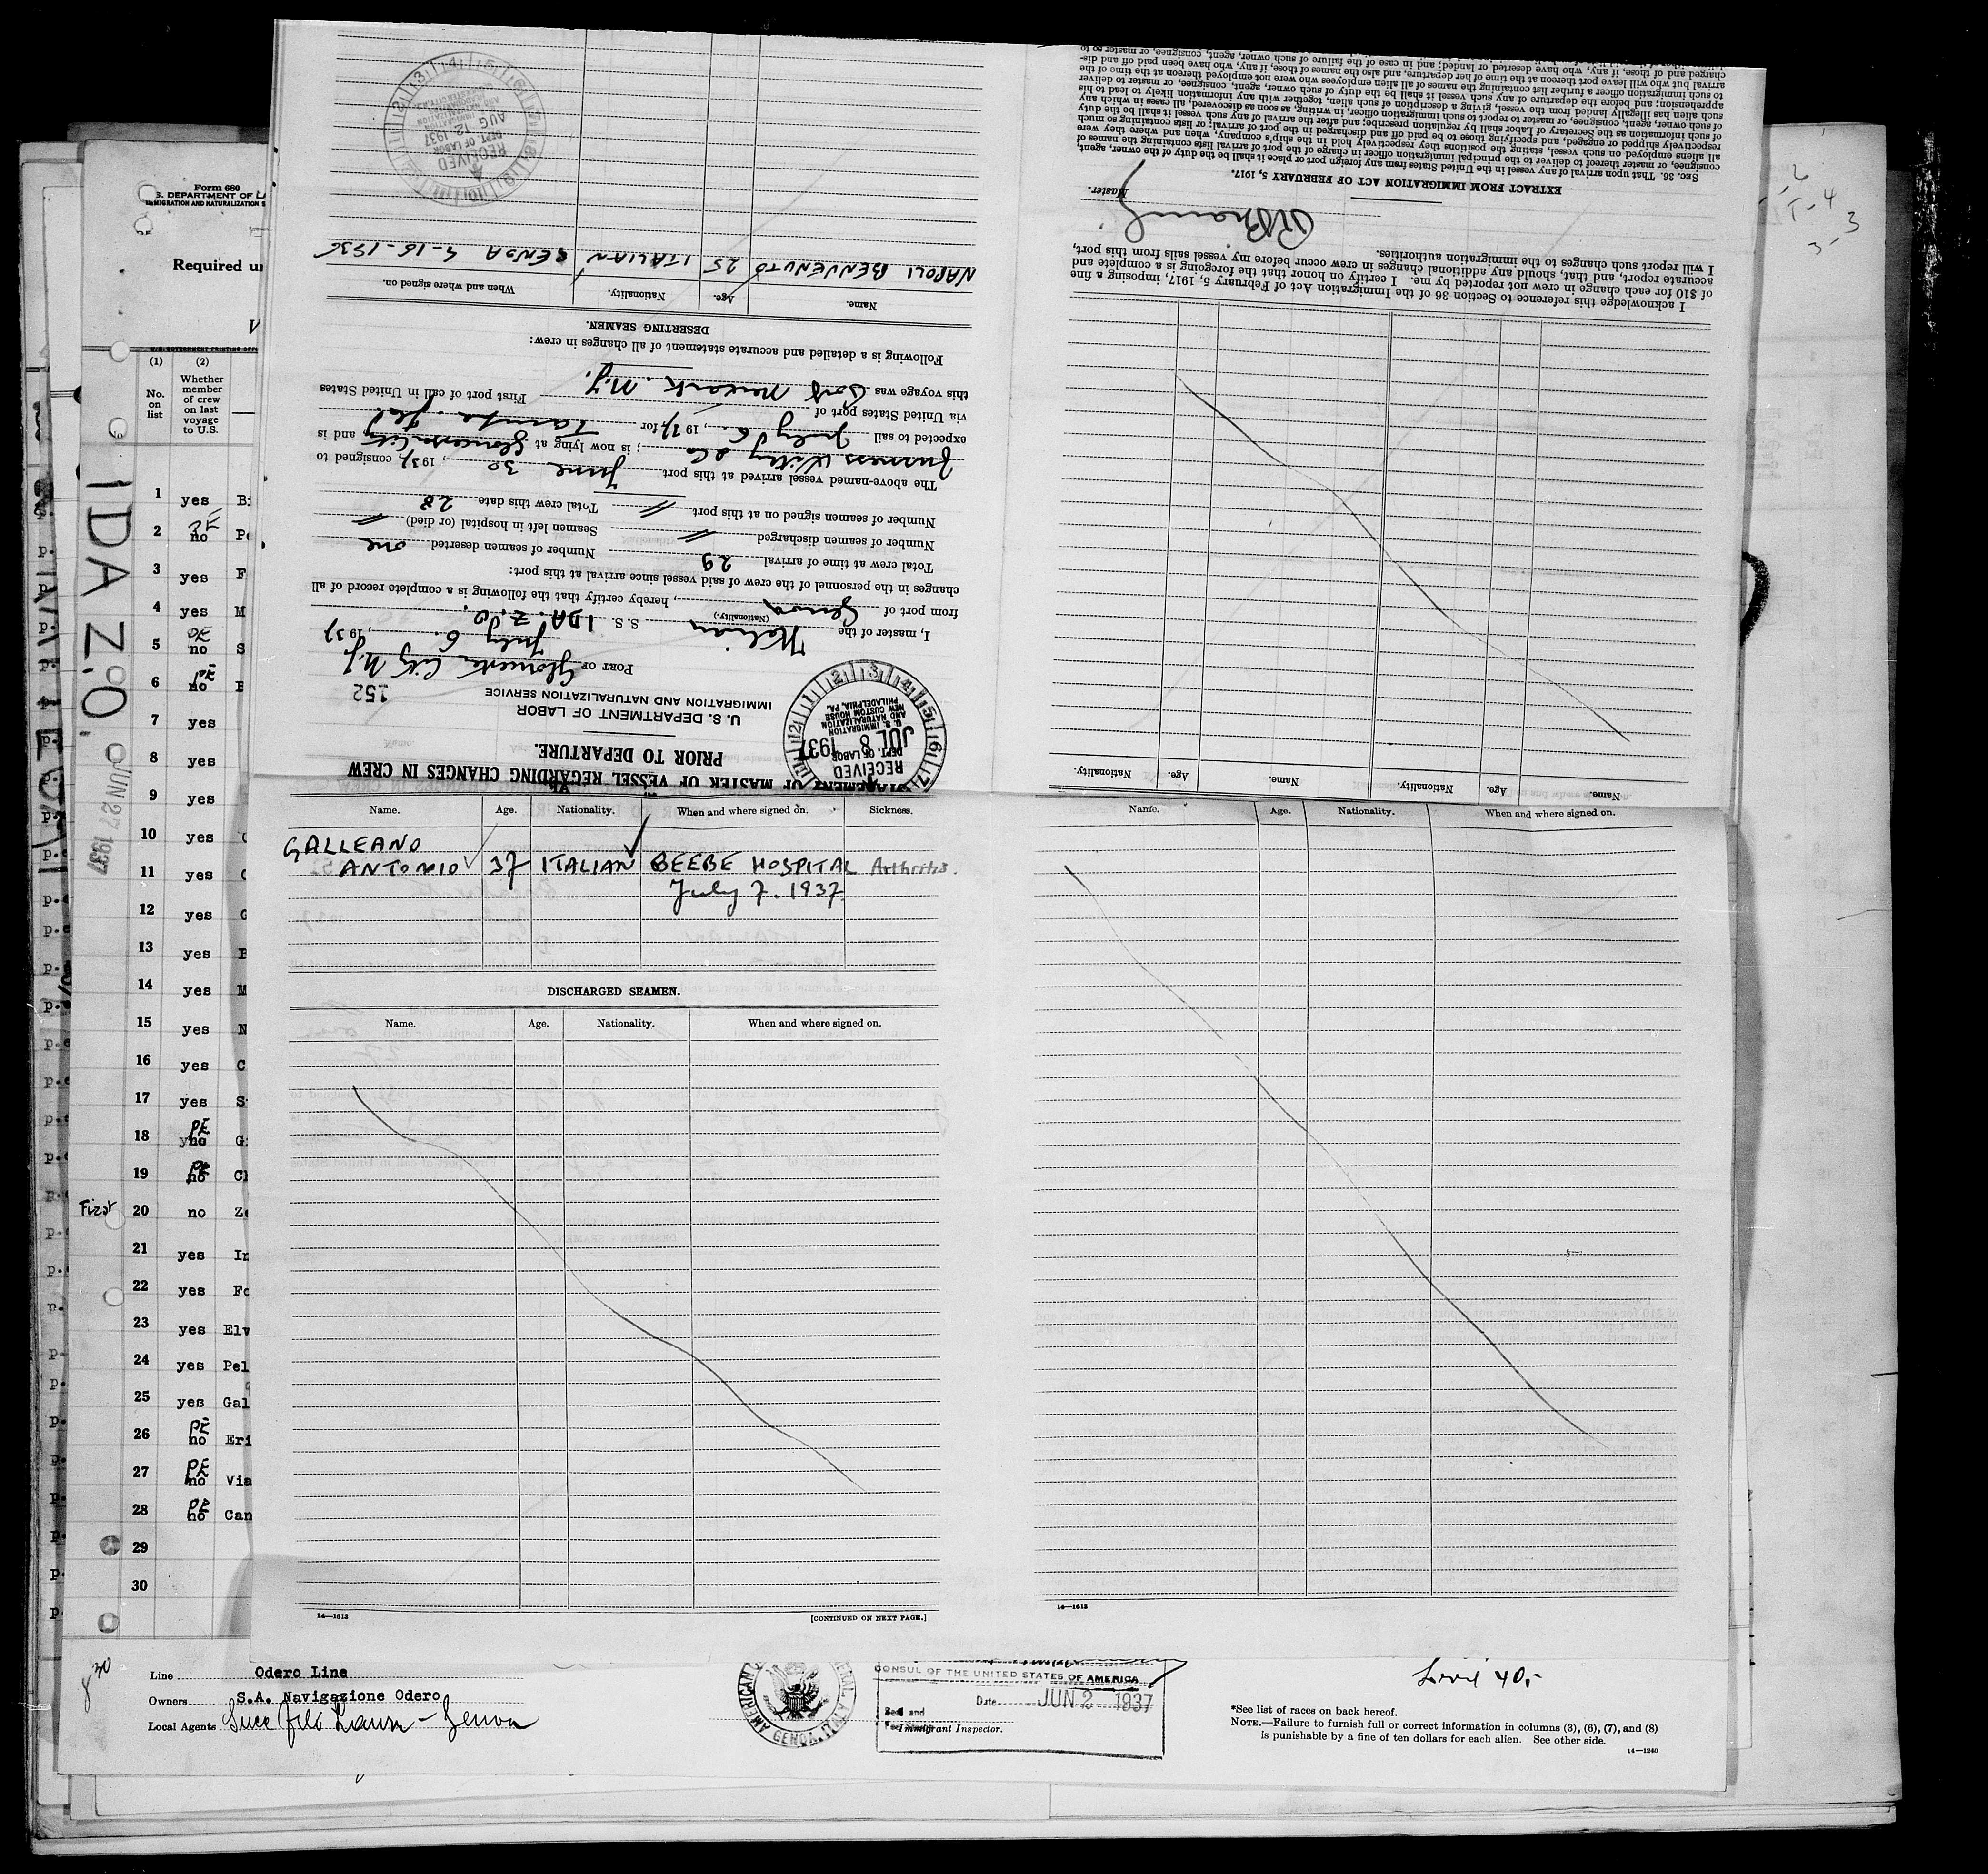 Form 680
S. DEPARTMENT OF LA
MIGRATION AND NATURALIZATION S
Required u
(1) (2)
No. on list
Whether member of crew on last voyage to U.S.
1 yes Bi
2 no
3 yes F
4 yes M
5 no S
6 no
7 yes
8 yes
9 yes
10 yes
11 yes
12 yes G
13 yes
14 yes M
15 yes N
16 yes C
17 yes S
18 no G
19 no Ch
First 20 no Ze
21 yes In
22 yes Fo
23 yes Elv
24 yes Pel
25 yes Gal
26 no Eri
27 no Via
28 no Can
29
30
IDA Z.O.
JUN 27 1937
STATEMENT OF MASTER OF VESSEL REGARDING CHANGES IN CREW
PRIOR TO DEPARTURE.
U. S. DEPARTMENT OF LABOR
IMMIGRATION AND NATURALIZATION SERVICE
152
RECEIVED
DEPT. OF LABOR
JUL 8 1937
U. S. IMMIGRATION
AND NATURALIZATION
NEW CUSTOM HOUSE
PHILADELPHIA, PA.
PORT OF Gloucester City N.J
July 6., 1937
I, master of the Italian (Nationality.) S. S. IDA. Z. O.
from port of Genoa, hereby certify that the following is a complete record of all
changes in the personnel of the crew of said vessel since arrival at this port:
Total crew at time of arrival 29 Number of seamen deserted one
Number of seamen discharged // Seamen left in hospital (or died) //
Number of seamen signed on at this port // Total crew this date 28
The above-named vessel arrived at this port June 30, 1937, consigned to
Furness Withy & Co; is now lying at Gloucester City, and is
expected to sail July 6., 1937, for Tampa. Fla)
via United States port of
this voyage was Port Newark. N.J. First port of call in United States
Following is a detailed and accurate statement of all changes in crew:
DESERTING SEAMEN.
Name. Age. Nationality. When and where signed on.
NAPOLI BENVENUTO 25 ITALIAN GENOA
RECEIVED
DEPT OF LABOR
AUG 12 1937
Name. Age. Nationality. Name. Age. Nationality.
I acknowledge this reference to Section 36 of the Immigration Act of February 5, 1917, imposing a fine
of $10 for each change in crew not reported by me. I certify on honor that the foregoing is a complete and
accurate report, and that, should any additional changes in crew occur before my vessel sails from this port,
I will report such changes to the immigration authorities.
Master.
EXTRACT FROM IMMIGRATION ACT OF FEBRUARY 5, 1917.
SEC. 36. That upon arrival of any vessel in the United States from any foreign port or place it shall be the duty of the owner, agent,
consignee, or master thereof to deliver to the principal immigration officer in charge of the port of arrival lists containing the names of
all aliens employed on such vessel, stating the positions they respectively hold in the ship's company, when and where they were
respectively shipped or engaged, and specifying those to be paid off and discharged in the port of arrival; or lists containing so much
of such information as the Secretary of Labor shall by regulation prescribe; and after the arrival of any such vessel it shall be the duty
of such owner, agent, consignee, or master to report to such immigration officer, in writing, as soon as discovered, all cases in which any
such alien has illegally landed from the vessel, giving a description of such alien, together with any information likely to lead to his
apprehension; and before the departure of any such vessel it shall be the duty of such owner, agent, consignee, or master to deliver
to such immigration officer a further list containing the names of all alien employees who were not employed thereon at the time of the
arrival but who will leave port thereon at the time of her departure, and also the names of those, if any, who have been paid off and dis-
charged and of those, if any, who have deserted or landed; and in case of the failure of such owner, agent, consignee, or master so to
Name. Age. Nationality. When and where signed on. Sickness.
GALLEANO
ANTONIO 37 ITALIAN BEEBE HOSPITAL Arthritis.
July 7. 1937
DISCHARGED SEAMEN.
Name. Age. Nationality. When and where signed on.
14—1613 [CONTINUED ON NEXT PAGE.]
Name. Age. Nationality. When and where signed on.
14—1613
Line Odero Line
Owners S.A. Navigazione Odero
Local Agents
AMERICAN
GENOA
CONSUL OF THE UNITED STATES OF AMERICA
Date JUN 2 1937
Immigrant Inspector.
*See list of races on back hereof.
NOTE.—Failure to furnish full or correct information in columns (3), (6), (7), and (8)
is punishable by a fine of ten dollars for each alien. See other side.
14—1240